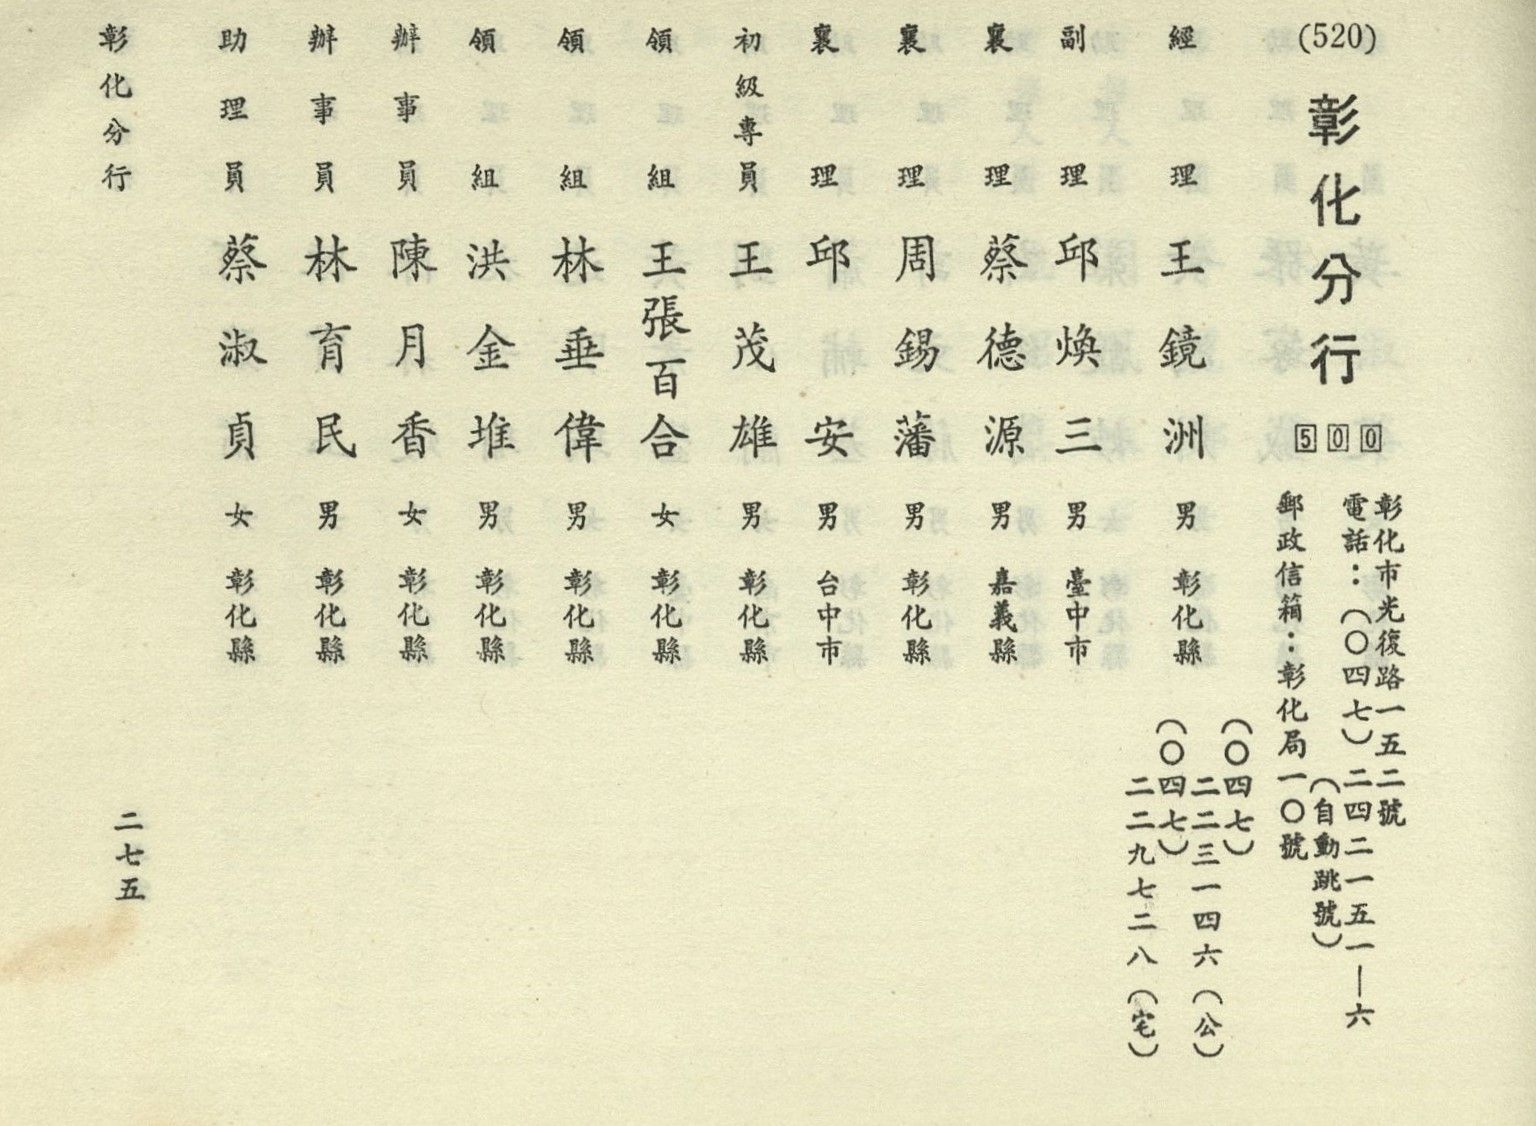 (520)
彰化分行
500
彰化市光復路一五二號
電話：（〇四七）二四二一五一—六
（自動跳號）
郵政信箱：彰化局一〇號
經理 王鏡洲 男 彰化縣
（〇四七）
二二三一四六（公）
（〇四七）
二二九七二八（宅）
副理 邱煥三 男 臺中市
襄理 蔡德源 男 嘉義縣
襄理 周錫藩 男 彰化縣
襄理 邱安 男 台中市
初級專員 王茂雄 男 彰化縣
領組 王張百合 女 彰化縣
領組 林垂偉 男 彰化縣
領組 洪金堆 男 彰化縣
辦事員 陳月香 女 彰化縣
辦事員 林育民 男 彰化縣
助理員 蔡淑貞 女 彰化縣
彰化分行
二七五